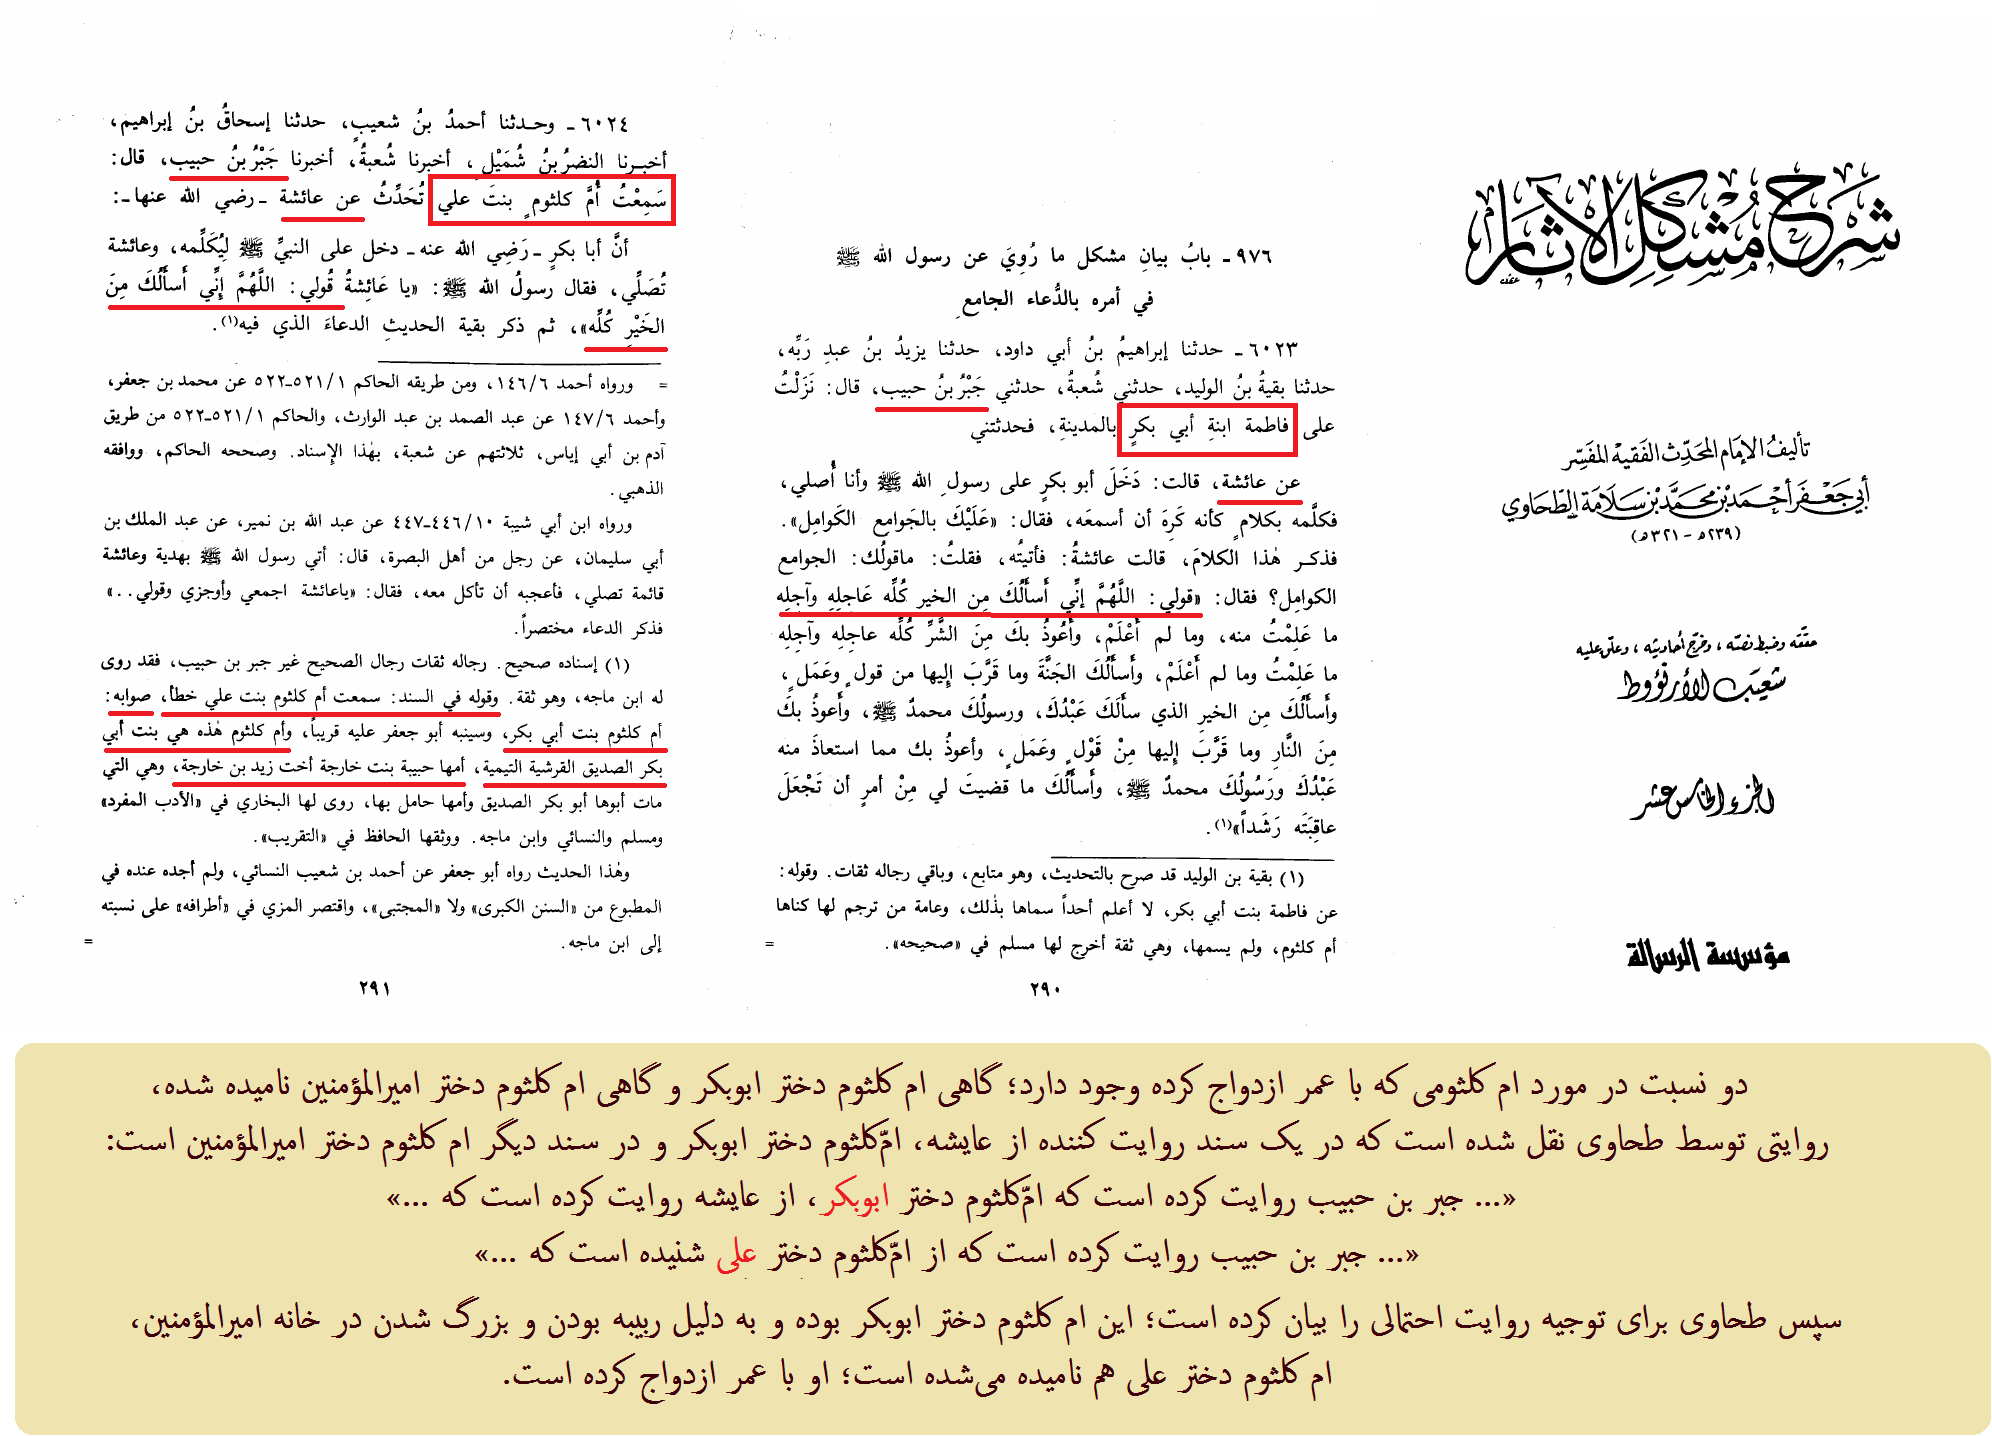 شرح مشكل الآثار
تأليف الإمام المحدث الفقيه المفسر
أبي جعفر أحمد بن محمد بن سلامة الطحاوي
(٢٣٩ه - ٣٢١ه)
حققه وضبط نصه، وخرج أحاديثه، وعلق عليه
شعيب الأرنؤوط
الجزء الخامس عشر
مؤسسة الرسالة
٩٧٦ـ بابُ بيانِ مشكل ما رُوِيَ عن رسول الله ﷺ
في أمره بالدُّعاء الجامعِ
٦٠٢٣ـ حدثنا إبراهيمُ بنُ أبي داود، حدثنا يزيدُ بنُ عبدِ رَبِّه،
حدثنا بقيةُ بنُ الوليد، حدثني شُعبةُ، حدثني جَبْرُ بنُ حبيب، قال: نَزَلْتُ
على فاطمة ابنةِ أبي بكرٍ بالمدينةِ، فحدثتني
عن عائشة، قالت: دَخَلَ أبو بكرٍ على رسولِ الله ﷺ وأنا أُصلي،
فكلَّمه بكلامٍ كأنه كَرِهَ أن أسمعَه، فقال: «عَلَيْكَ بالجَوامعِ الكَوامِلِ».
فذكر هٰذا الكلامَ، قالت عائشةُ: فأتيتُه، فقلتُ: ماقولُك: الجوامع
الكوامِل؟ فقال: «قولي: اللَّهُمَّ إنِّي أَسأَلُكَ مِن الخيرِ كُلِّه عَاجلِهِ وآجلِه
ما عَلِمْتُ منه، وما لم أَعْلَمْ، وأَعُوذُ بكَ مِنَ الشَّرِّ كُلِّه عاجلِه وآجلِه
ما عَلِمْتُ وما لم أَعْلَمْ، وأَسأَلُكَ الجَنَّةَ وما قَرَّبَ إليها من قولٍ وعَمَلٍ،
وأَسأَلُكَ مِن الخيرِ الذي سأَلَكَ عَبْدُكَ، ورسولُكَ محمدٌ ﷺ، وأَعوذُ بكَ
مِنَ النَّارِ وما قَرَّبَ إليها مِنْ قَوْلٍ وعَمَلٍ، وأعوذُ بك مما استعاذَ منه
عَبْدُكَ ورَسُولُكَ محمدٌ ﷺ، وأَسأَلُكَ ما قضيتَ لي مِنْ أمرٍ أن تَجْعَلَ
عاقِبَتَه رَشَداً»(١).
(١) بقية بن الوليد قد صرح بالتحديث، وهو متابع، وباقي رجاله ثقات. وقوله:
عن فاطمة بنت أبي بكر، لا أعلم أحداً سماها بذلك، وعامة من ترجم لها كناها
أم كلثوم، ولم يسمها، وهي ثقة أخرج لها مسلم في «صحيحه». =
٢٩٠
٦٠٢٤ـ وحدثنا أحمدُ بنُ شعيبٍ، حدثنا إسحاقُ بنُ إبراهيم،
أخبرنا النضرُ بنُ شُمَيْلٍ، أخبرنا شُعبةُ، أخبرنا جَبْرُ بنُ حبيب، قال:
سَمِعْتُ أُمَّ كلثومٍ بنتَ علي تُحَدِّثُ عن عائشة ـ رضي الله عنها ـ:
أنَّ أبا بكرٍ ـ رَضِي الله عنه ـ دخل على النبيِّ ﷺ لِيُكَلِّمه، وعائشة
تُصَلِّي، فقال رسولُ الله ﷺ: «يا عَائِشةُ قُولي: اللَّهُمَّ إنِّي أَسأَلُكَ مِنَ
الخَيْرِ كُلِّه»، ثم ذكر بقية الحديثِ الدعاءَ الذي فيه(١).
= ورواه أحمد ١٤٦/٦، ومن طريقه الحاكم ٥٢١/١ـ٥٢٢ عن محمد بن جعفر،
وأحمد ١٤٧/٦ عن عبد الصمد بن عبد الوارث، والحاكم ٥٢١/١ـ٥٢٢ من طريق
آدم بن أبي إياس، ثلاثتهم عن شعبة، بهٰذا الإسناد. وصححه الحاكم، ووافقه
الذهبي.
ورواه ابن أبي شيبة ٤٤٦/١٠ـ٤٤٧ عن عبد الله بن نمير، عن عبد الملك بن
أبي سليمان، عن رجل من أهل البصرة، قال: أتي رسول الله ﷺ بهدية وعائشة
قائمة تصلي، فأعجبه أن تأكل معه، فقال: «ياعائشة اجمعي وأوجزي وقولي..»
فذكر الدعاء مختصراً.
(١) إسناده صحيح. رجاله ثقات رجال الصحيح غير جبر بن حبيب، فقد روى
له ابن ماجه، وهو ثقة. وقوله في السند: سمعت أم كلثوم بنت علي خطأ، صوابه:
أم كلثوم بنت أبي بكر، وسينبه أبو جعفر عليه قريباً، وأم كلثوم هٰذه هي بنت أبي
بكر الصديق القرشية التيمية، أمها حبيبة بنت خارجة أخت زيد بن خارجة، وهي التي
مات أبوها أبو بكر الصديق وأمها حامل بها، روى لها البخاري في «الأدب المفرد»
ومسلم والنسائي وابن ماجه. ووثقها الحافظ في «التقريب».
وهٰذا الحديث رواه أبو جعفر عن أحمد بن شعيب النسائي، ولم أجده عنده في
المطبوع من «السنن الكبرى» ولا «المجتبى»، واقتصر المزي في «أطرافه» على نسبته
إلى ابن ماجه. =
٢٩١
دو نسبت در مورد ام کلثومی که با عمر ازدواج کرده وجود دارد؛ گاهی ام کلثوم دختر ابوبکر و گاهی ام کلثوم دختر امیرالمؤمنین نامیده شده،
روایتی توسط طحاوی نقل شده است که در یک سند روایت کننده از عایشه، امّ‌کلثوم دختر ابوبکر و در سند دیگر ام کلثوم دختر امیرالمؤمنین است:
«... جبر بن حبیب روایت کرده است که امّ‌کلثوم دختر ابوبکر، از عایشه روایت کرده است که ...»
«... جبر بن حبیب روایت کرده است که از امّ‌کلثوم دختر علی شنیده است که ...»
سپس طحاوی برای توجیه روایت احتمالی را بیان کرده است؛ این ام کلثوم دختر ابوبکر بوده و به دلیل ربیبه بودن و بزرگ شدن در خانه امیرالمؤمنین،
ام کلثوم دختر علی هم نامیده می‌شده است؛ او با عمر ازدواج کرده است.